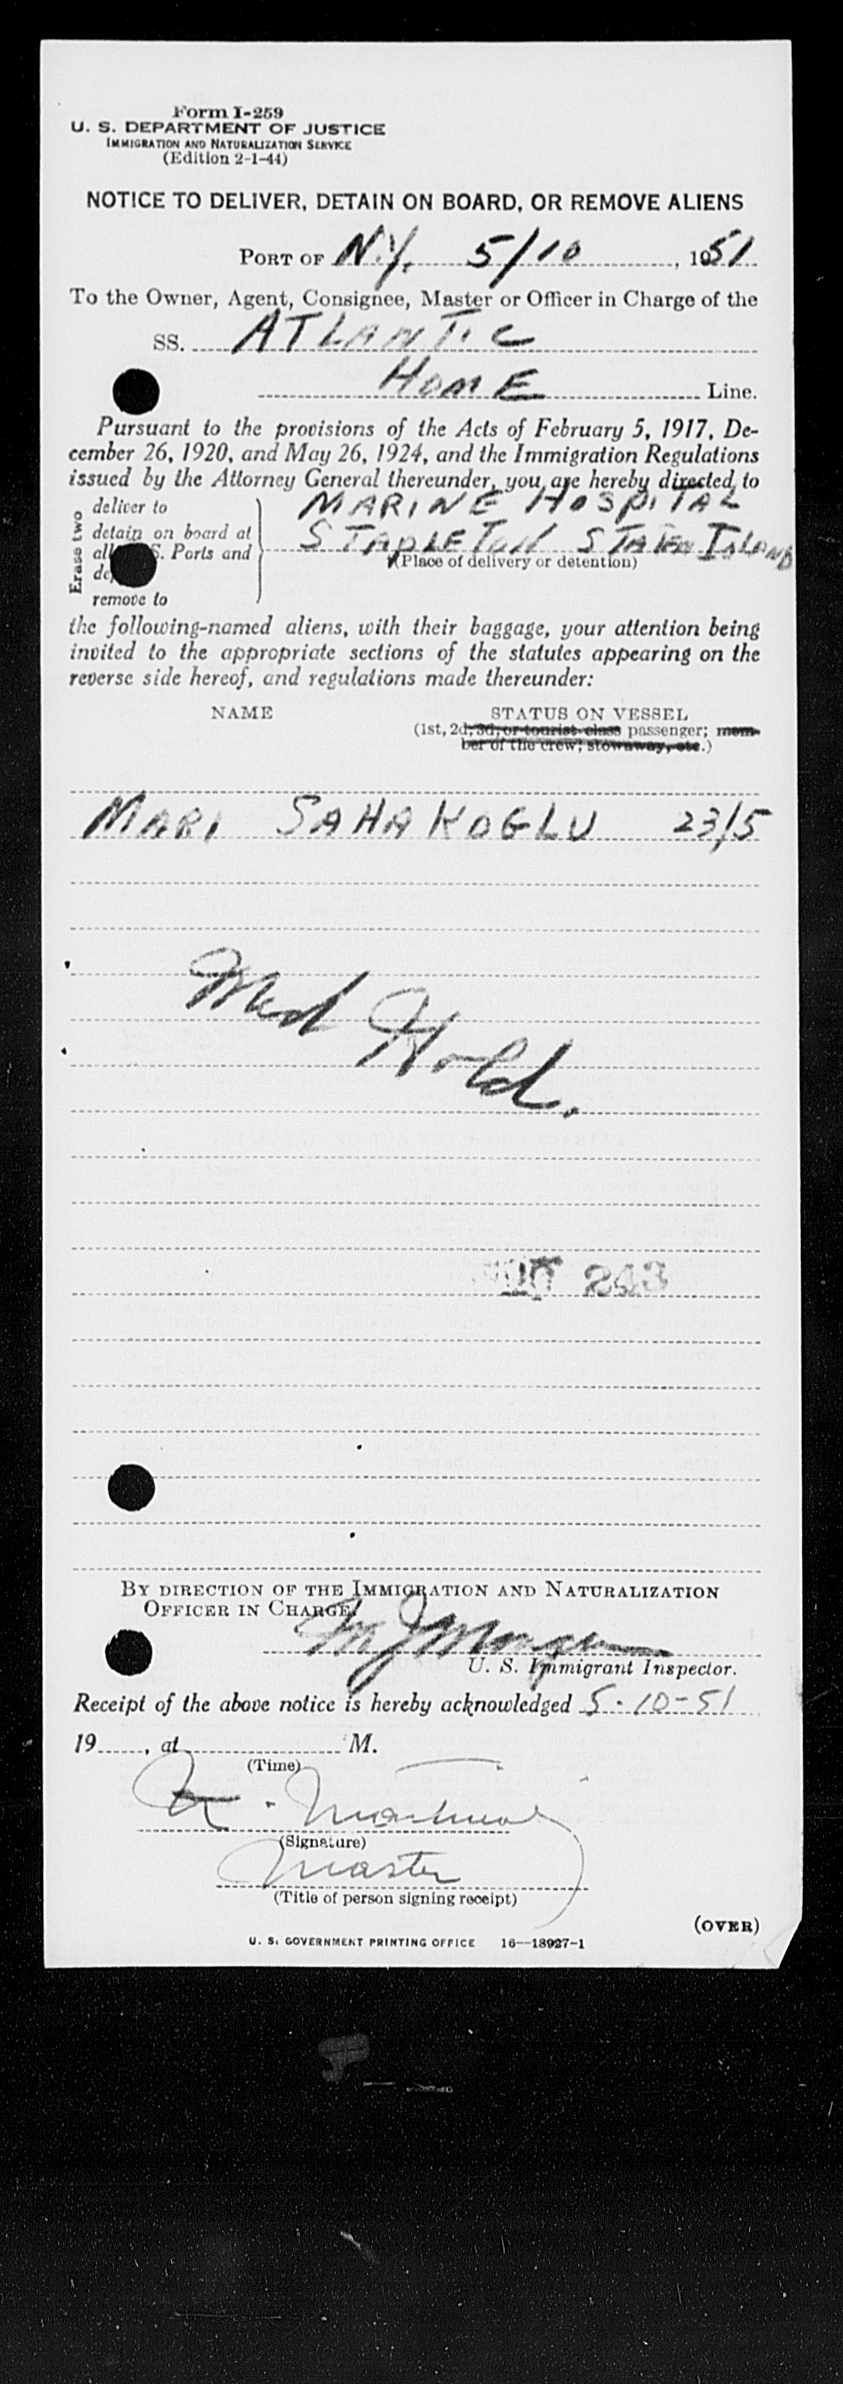 Form I-259
U. S. DEPARTMENT OF JUSTICE
IMMIGRATION AND NATURALIZATION SERVICE
(Edition 2-1-44)
NOTICE TO DELIVER, DETAIN ON BOARD, OR REMOVE ALIENS
PORT OF N.Y. 5/10, 1951
To the Owner, Agent, Consignee, Master or Officer in Charge of the
SS. ATLANTIC
HOME Line.
Pursuant to the provisions of the Acts of February 5, 1917, De-
cember 26, 1920, and May 26, 1924, and the Immigration Regulations
issued by the Attorney General thereunder, you are hereby directed to
Erase two
deliver to
detain on board at
all S. Ports and
de
remove to
MARINE HOSPITAL
STAPLETON STATEN ISLAND
(Place of delivery or detention)
the following-named aliens, with their baggage, your attention being
invited to the appropriate sections of the statutes appearing on the
reverse side hereof, and regulations made thereunder:
NAME STATUS ON VESSEL
(1st, 2d, 3d, or tourist class passenger; mem-
ber of the crew; stowaway, etc.)
MARI SAHAKOGLU 23/5
Med Hold.
243
BY DIRECTION OF THE IMMIGRATION AND NATURALIZATION
OFFICER IN CHARGE.
M J
U. S. Immigrant Inspector.
Receipt of the above notice is hereby acknowledged 5-10-51
19, at M.
(Time)
(Signature)
Master
(Title of person signing receipt)
(OVER)
U. S. GOVERNMENT PRINTING OFFICE 16—18927-1